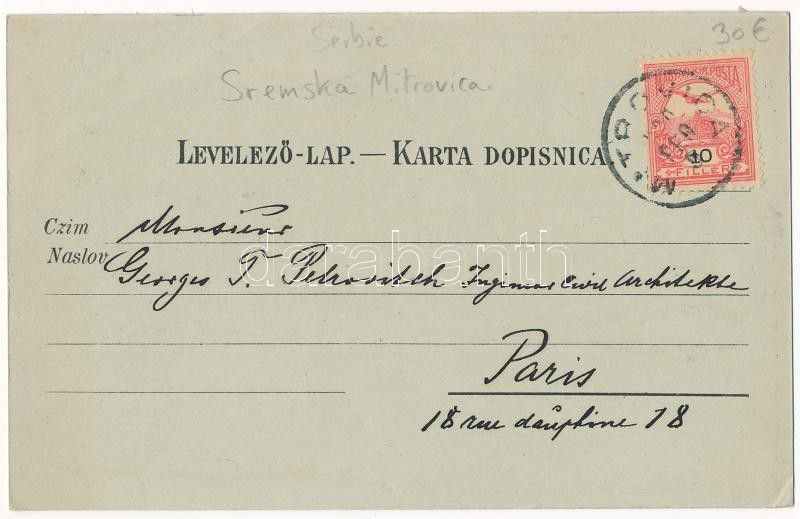 Serbie
30€
Sremska Mitrovica
MITROVICA
MAGYAR POSTA
10
FILLÉR
LEVELEZŐ-LAP. — KARTA DOPISNICA
Czim Monsieur
Naslov Georges T. Petrovitch Ingénieur Civil Architekte
darabanth
Paris
18 rue dauphine 18